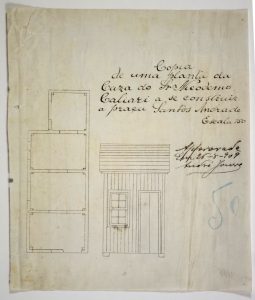 Copia
de uma planta da
Caza do Sr Nicodemo
a se construir
a praça Santos Andrade
Escala 1:50
Approvado
50